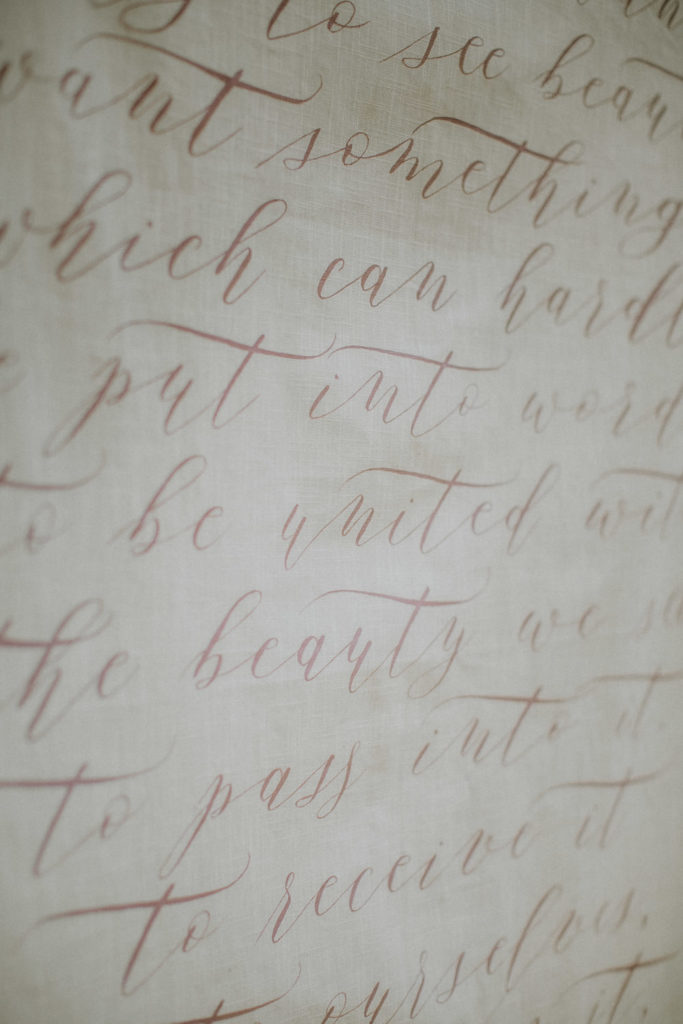 to see beau
want something
which can hardl
put into word
to be united wit
the beauty we se
to pass into it,
to receive it
to ourselves,
it,